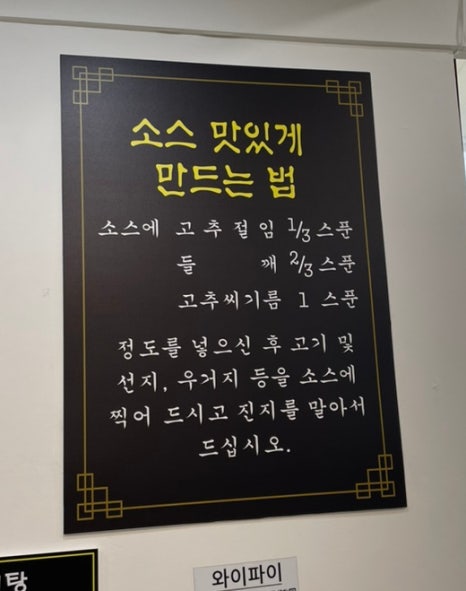 소스 맛있게
만드는 법
소스에 고추절임 1/3 스푼
들 깨 2/3 스푼
고추씨기름 1 스푼
정도를 넣으신 후 고기 및
선지, 우거지 등을 소스에
찍어 드시고 진지를 말아서
드십시오.
탕
와이파이